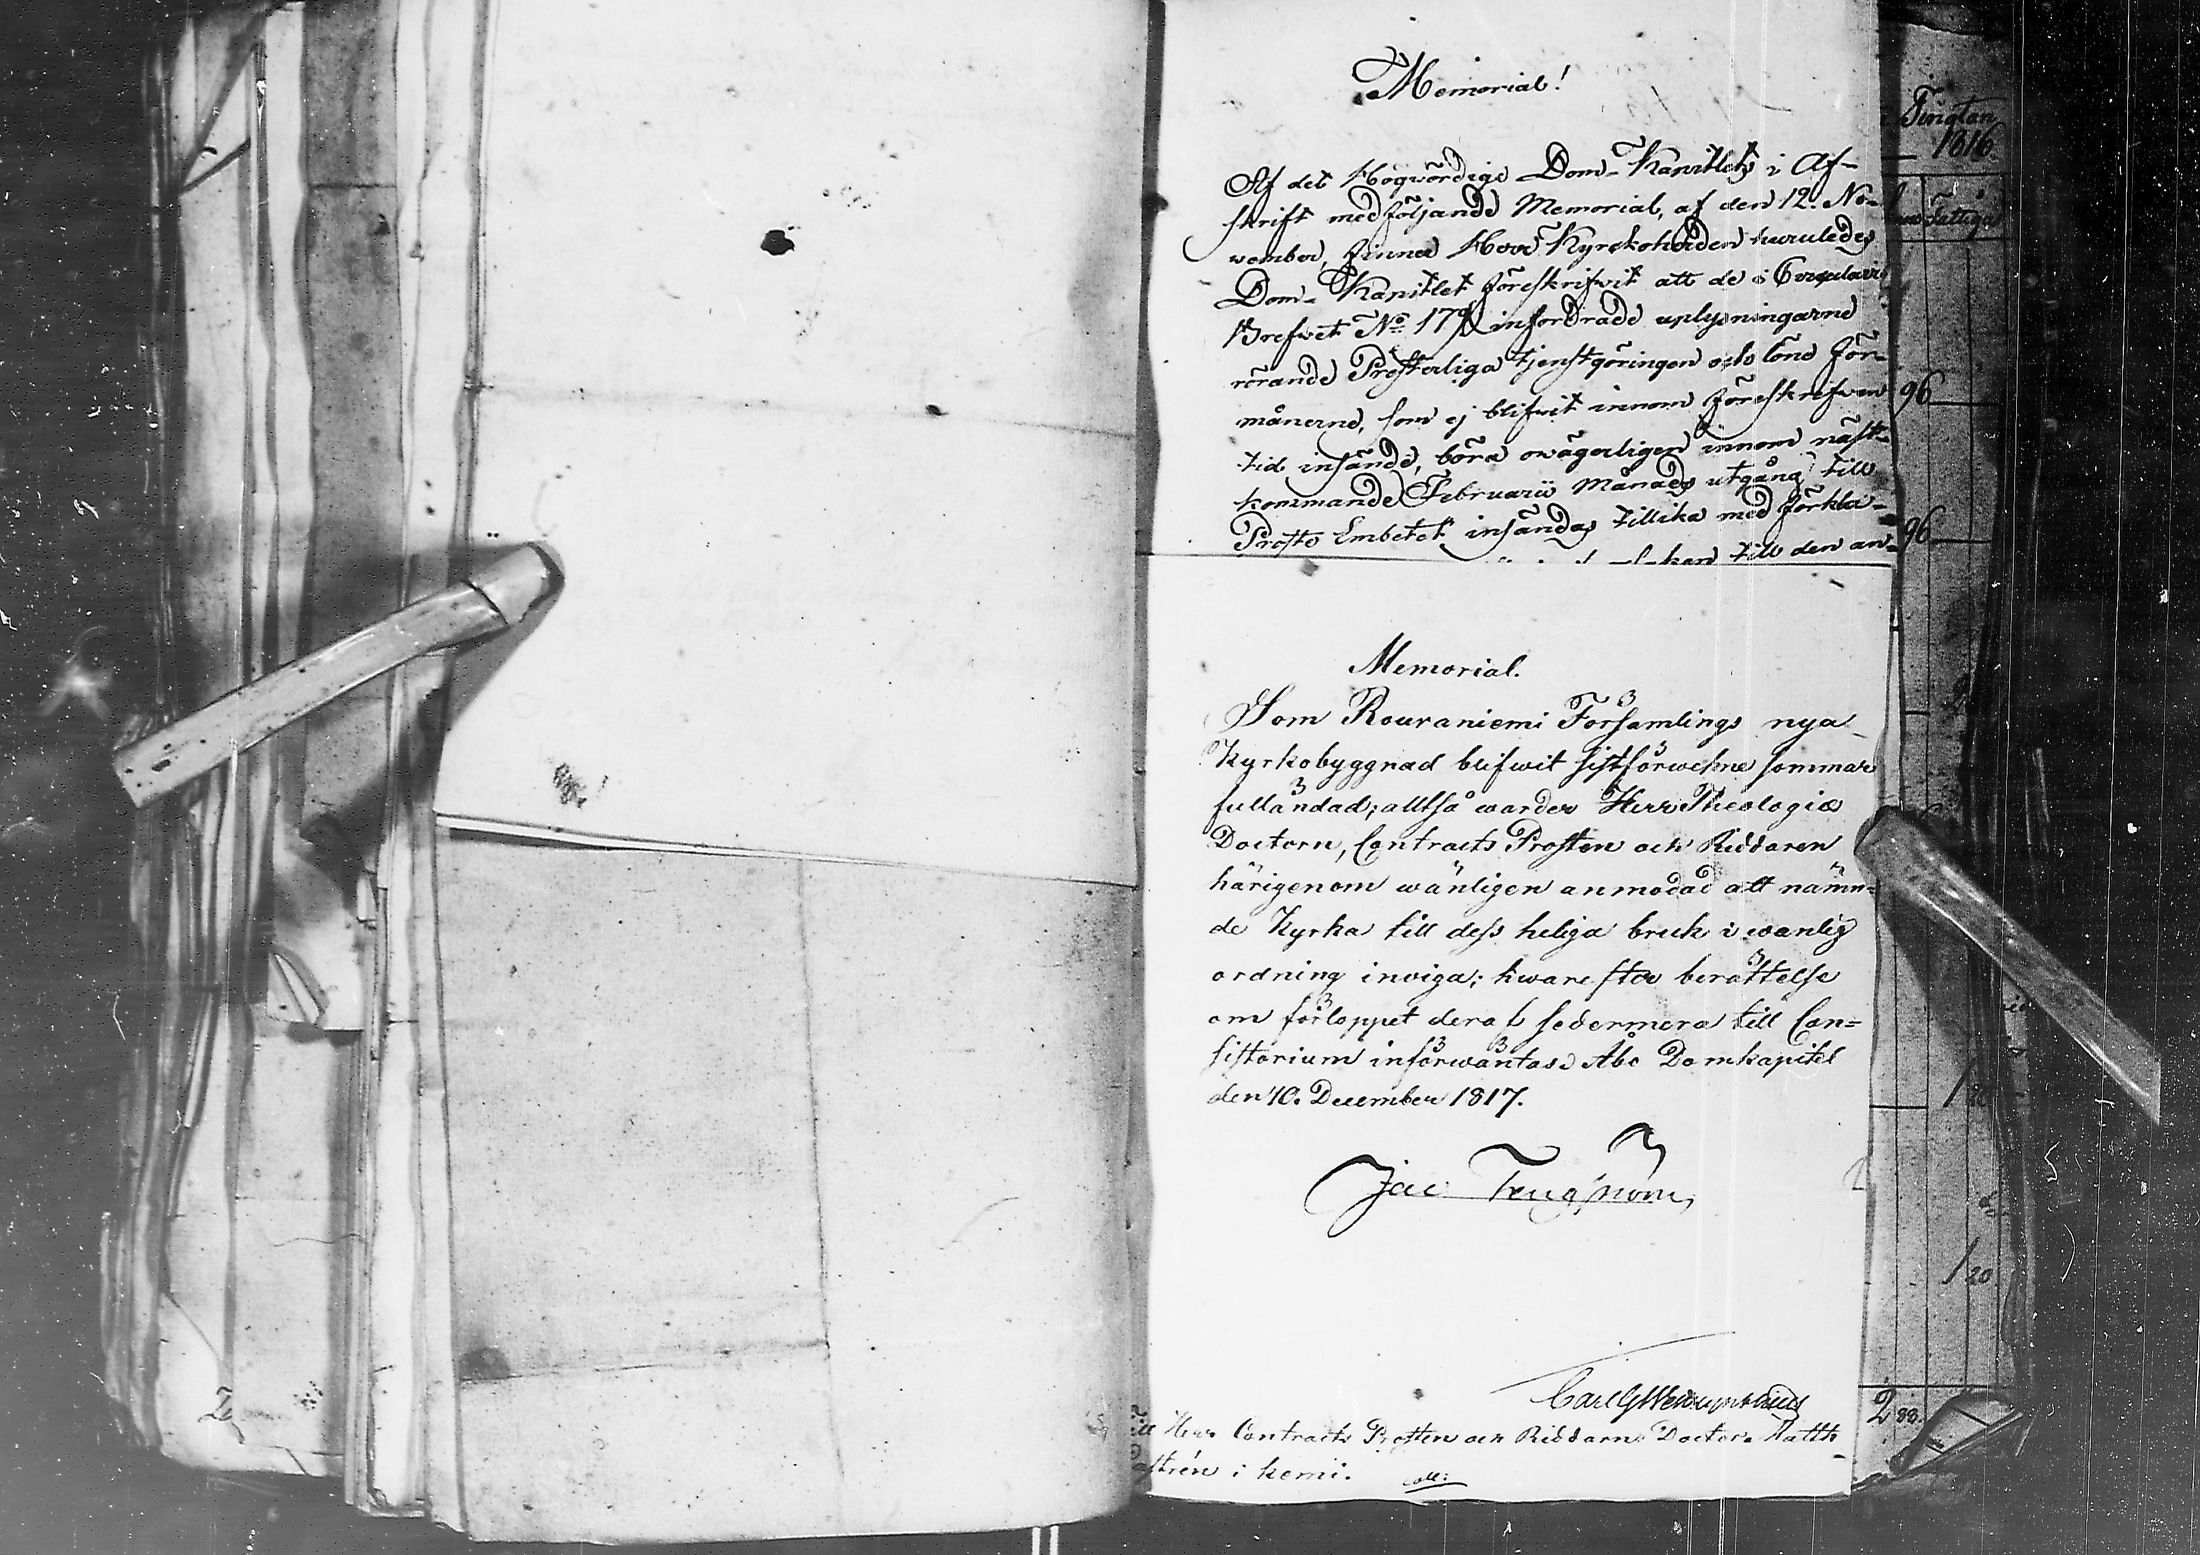 Memorial!
Af det Högwördige Dom-Kapitlets i Af-
skrift medföljande Memorial, af den 12. No-
wember, finner Herr Kyrckoherden huruledes
Dom-Kapitlet föreskrifwit att de i Circulaire
Brefwet No 179 infordrade uplysningarne
rörande Presterliga tjenstgöringen och löne för-
månerne, som ej blifwit innom föreskrifwen
tid insände, böra owägerligen innom näst-
kommande Februarii Månads utgång till
Prosts Embetet insändas tillika med förkla-
till den an-
Memorial.
Som Rouvaniemi Församlings nya
Kyrkobyggnad blifwit sistförwekne sommar
fulländad; alltså warder Herr Theologiæ
Doctorn, Contracts Prosten och Riddaren
härigenom wänligen anmodad att nämn=
de Kyrka till dess heliga bruk i wanlig
ordning inviga; hwarefter berättelse
om förloppet deraf sedermera till Con=
sistorium införwäntas. Åbo Domkapitel
den 10. December 1817.
Jac Tengström
Till Herr Contracts Prosten och Riddarn Doctor Matth
Castrén i Kemi.
coll:
1816
Fattiga
96
96
1 20
2 88.